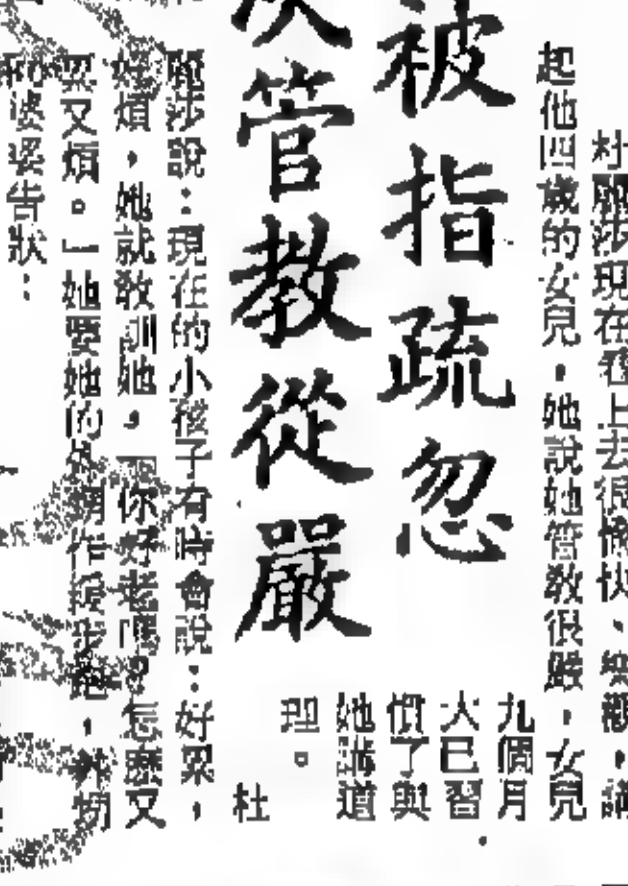 被指疏忽
管教從嚴
杜麗莎現在看上去很愉快、樂觀,講
起他四歲的女兒,她說她管教很嚴,女兒
九個月
大已習
慣了與
她講道
理。
杜
麗莎說:現在的小孩子有時會說:好累,
好煩,她就教訓她,「你好老嗎?怎麼又
累又煩。」她要她的
和婆婆告狀: